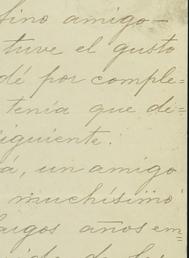 fino amigo-
tuve el gusto
dé por comple=
tenía que de-
iguiente:
á, un amigo
muchísimo
largos años em-